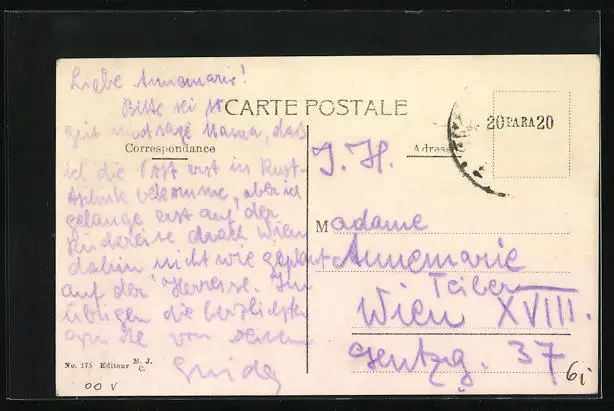 Liebe Annemarie!
Bitte sei so
gut und sage Mama, daß
ich die Post erst in Rust-
bekomme, aber ich
gelange erst auf der
Rückreise durch Wien
dahin nicht wie geplant
auf der Herreise. Im
übrigen die herzlichsten
von deinem
Guido
CARTE POSTALE
Correspondance
Adres
20 PARA 20
I. H.
Madame
Annemarie
Teiber
Wien XVIII.
Gentzg. 37
No. 175 Editeur M. J. C.
00 V
6i